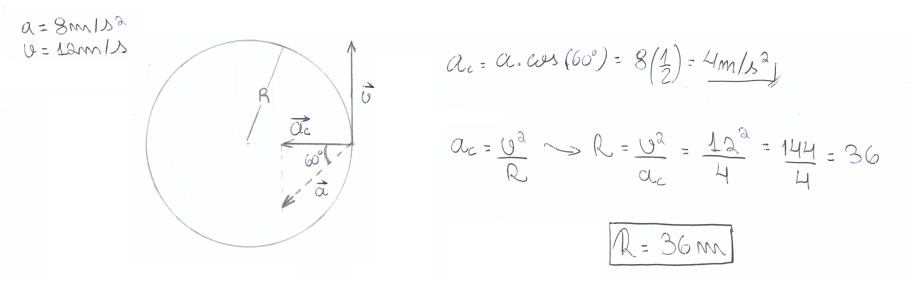 a = 8m/s²
v = 12m/s
R
a⃗c
v⃗
60°
a⃗
ac = a.cos(60°) = 8(1/2) = 4m/s²
ac = v²/R → R = v²/ac = 12²/4 = 144/4 = 36
R = 36m